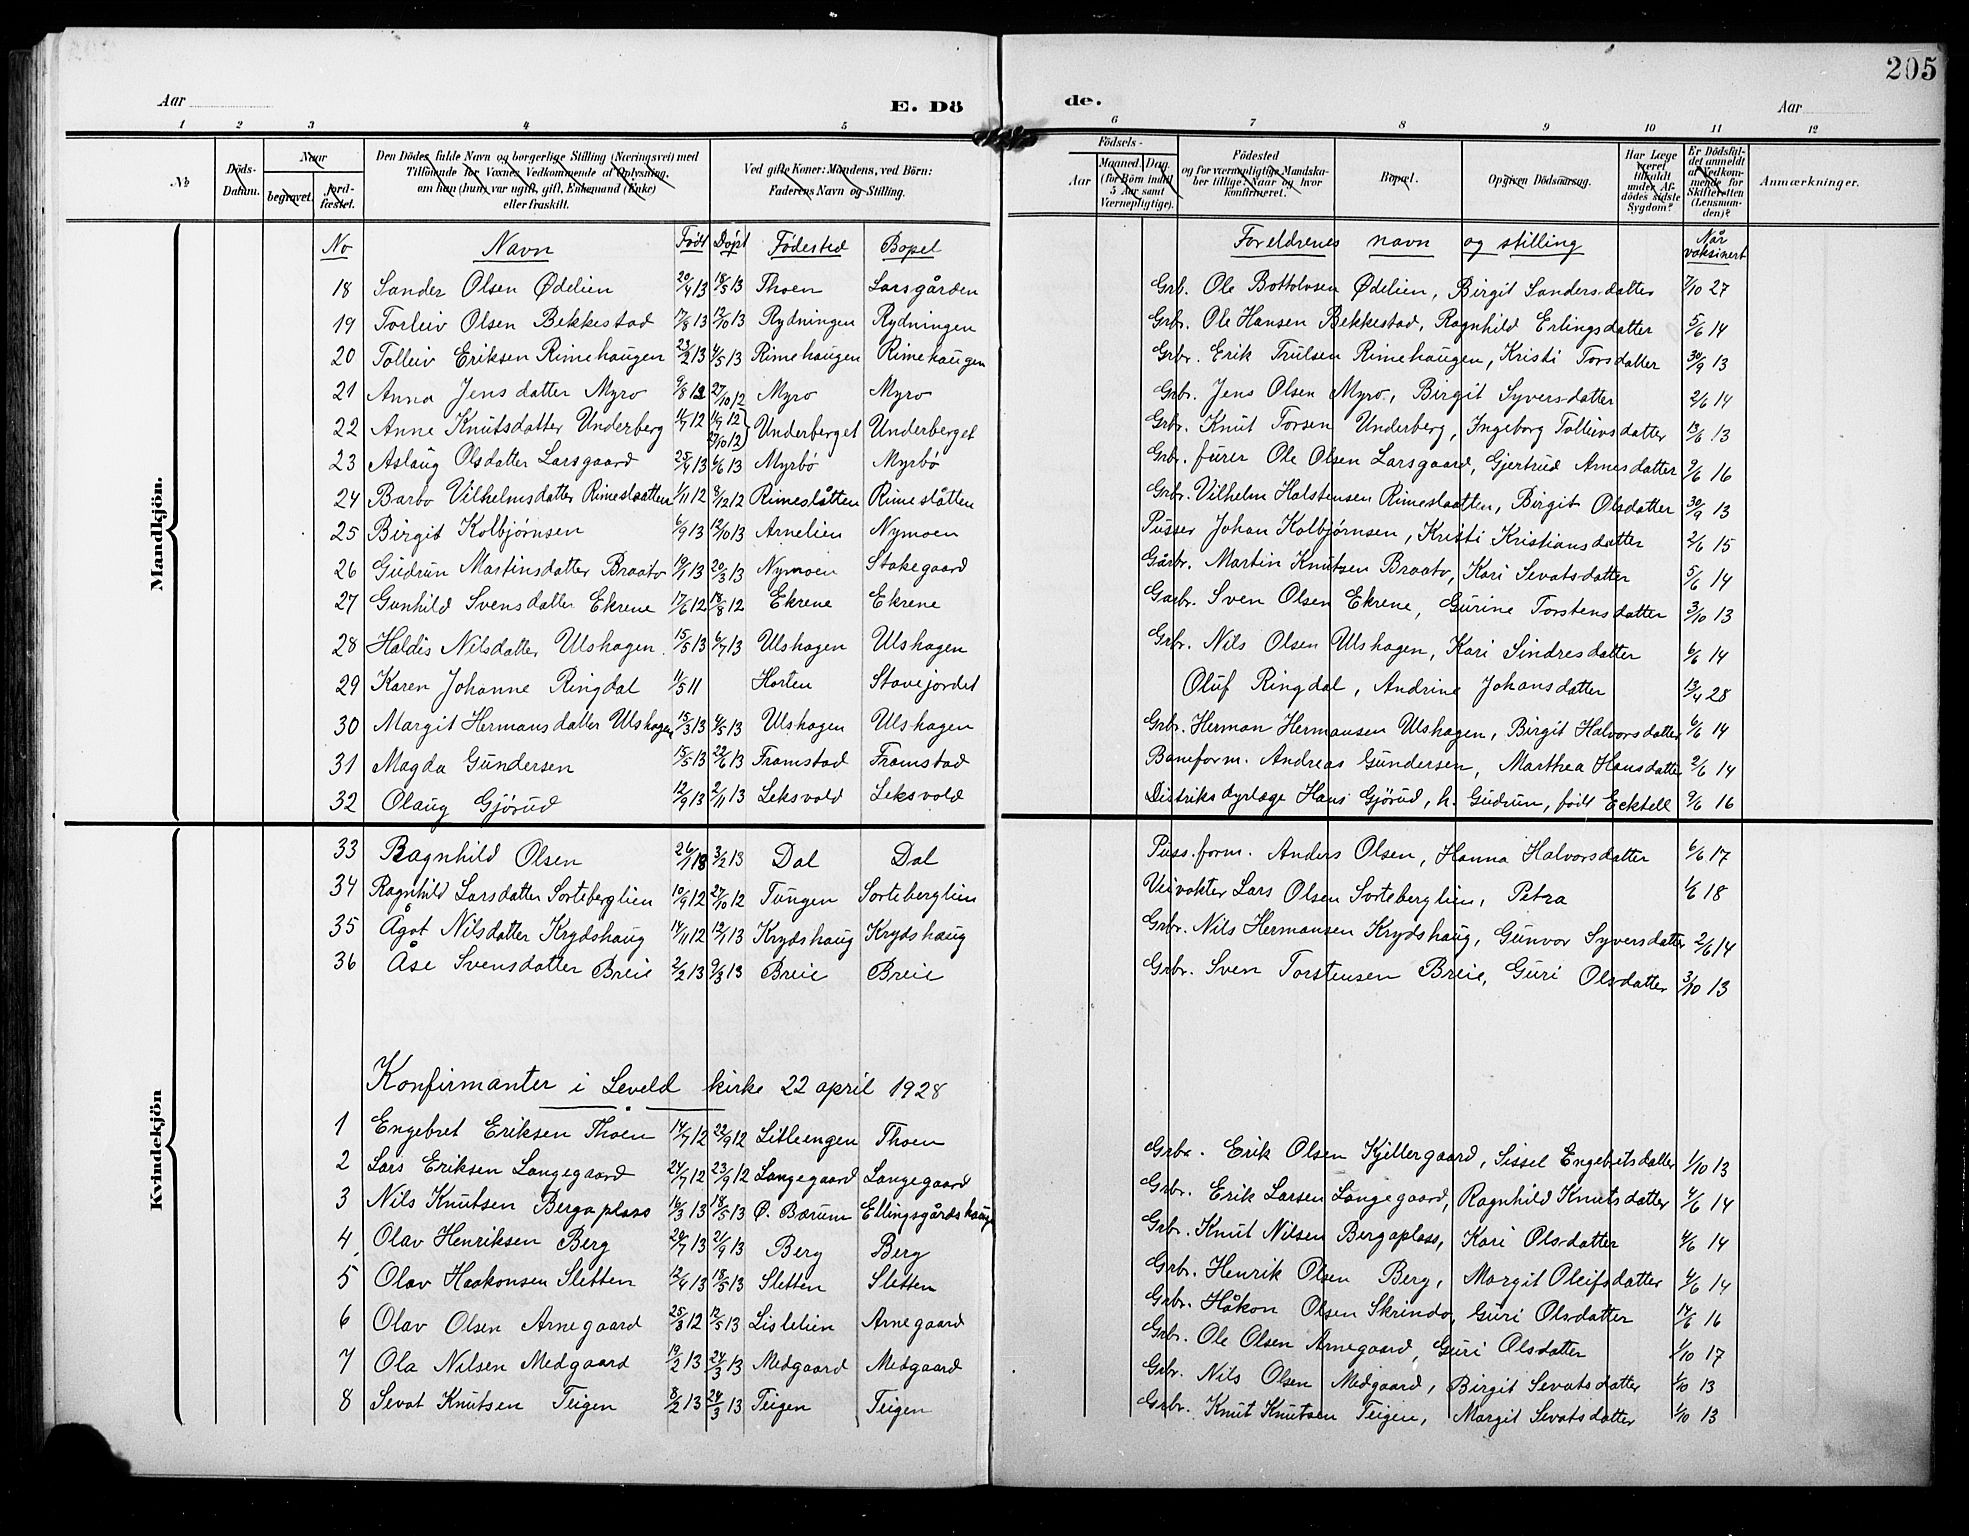 205
Aar E. Dö de. Aar
1 2 3 4 5 6 7 8 9 10 11 12
№ Döds-Datum. Naar begravet. Jord-fæstet. Den Dødes fulde Navn og borgerlige Stilling (Næringsvei) med Tilføiende for Voxnes Vedkommende af Oplysning, om han (hun) var ugift, gift, Enkemand (Enke) eller fraskilt. Ved gifte Koner: Mandens, ved Börn: Faderens Navn og Stilling. Födsels- Aar Maaned. Dag. (for Börn indtil 5 Aar samt Værnepligtige). Födested og for værnepligtige Mandskaber tillige: Naar og hvor konfirmeret. Bopæl. Opgiven Dödsaarsag. Har Læge været tilkaldt under Afdödes sidste Sygdom? Er Dödsfaldet anmeldt af Vedkommende for Skifteretten (Lensmanden)? Anmærkninger.
Mandkjön.
No Navn Født Døpt Fødested Bopel Foreldrenes navn og stilling Når vaksinert
18 Sander Olsen Ødelien 20/4 13 18/5 13 Thoen Larsgården Grb. Ole Bottolvsen Ødelien, Birgit Sandersdatter 7/10 27
19 Torleiv Olsen Bekkestad 17/8 13 12/10 13 Rydningen Rydningen Grb. Ole Hansen Bekkestad, Ragnhild Erlingsdatter 5/6 14
20 Tolleiv Eriksen Rimehaugen 23/2 13 4/5 13 Rimehaugen Rimehaugen Grbr. Erik Trulsen Rimehaugen, Kristi Torsdatter 30/9 13
21 Anna Jensdatter Myro 9/8 12 27/10 12 Myro Myro Grb. Jens Olsen Myro, Birgit Syversdatter 2/6 14
22 Anne Knutsdatter Underberg 11/7 12 11/7 12 27/10 12 Underberget Underberget Grbr. Knut Torsen Underberg, Ingeborg Tolleivsdatter 13/6 13
23 Aslaug Olsdatter Larsgaard 25/4 13 6/6 13 Myrbø Myrbø Grb. furer Ole Olsen Larsgaard, Gjertrud Arnesdatter 9/6 16
24 Barbo Vilhelmsdatter Rimeslaatten 1/11 12 8/12 12 Rimeslåtten Rimeslåtten Grb. Vilhelm Halstensen Rimeslaatten, Birgit Olsdatter 30/9 13
25 Birgit Kolbjørnsen 6/9 13 12/10 13 Arnelien Nymoen Pusser Johan Kolbjørnsen, Kristi Kristiansdatter 2/6 15
26 Gudrun Martinsdatter Braato 19/1 13 20/3 13 Nymoen Stakegaard Gårbr. Martin Knutsen Braato, Kari Sevatsdatter 5/6 14
27 Gunhild Svensdatter Ekrene 17/6 12 18/8 12 Ekrene Ekrene Garbr. Sven Olsen Ekrene, Gurine Torstensdatter 3/10 13
28 Haldis Nilsdatter Ulshagen. 15/5 13 6/7 13 Ulshagen Ulshagen Grbr. Nils Olsen Ulshagen, Kari Sindresdatter 6/6 14
29 Karen Johanne Ringdal 11/5 11 Horten Stavejordet Oluf Ringdal, Andrine Johansdatter 13/4 28
30 Margit Hermansdatter Ulshagen 15/3 13 4/5 13 Ulshagen Ulshagen Grbr. Herman Hermansen Ulshagen, Birgit Halvorsdatter 6/6 14
31 Magda Gundersen 15/5 13 22/6 13 Framstad Framstad Baneform. Andreas Gundersen, Marthea Hansdatter 2/6 14
32 Olaug Gjørud 12/9 13 2/11 13 Leksvold Leksvold Distriksdyrlæge Hans Gjørud, h. Gudrun, født Ecktell 9/6 16
Kvindekjön
33 Ragnhild Olsen 26/1 13 3/2 13 Dal Dal Puss. form. Anders Olsen, Hanna Halvorsdatter 6/6 17
34 Ragnhild Larsdatter Sorteberglien 10/9 12 27/10 12 Tungen Sorteberglien Veivokter Lars Olsen Sorteberglien, Petra 1/6 18
35 Ågot Nilsdatter Krydshaug 14/11 12 12/1 13 Krydshaug Krydshaug Grbr. Nils Hermansen Krydshaug, Gunvor Syversdatter 2/6 14
36 Åse Svensdatter Breie 2/2 13 9/3 13 Breie Breie Grbr. Sven Torstensen Breie, Guri Olsdatter 3/10 13
Konfirmanter i Leveld kirke 22 april 1928
1 Engebret Eriksen Thoen 14/7 12 22/9 12 Litleengen Thoen Grbr. Erik Olsen Kjillergaard, Sissel Engebretsdatter 1/10 13
2 Lars Eriksen Langegaard 24/7 12 23/9 12 Langegaard Langegaard Grbr. Erik Larsen Langegaard, Ragnhild Knutsdatter 4/6 14
3 Nils Knutsen Bergaplass 16/3 13 18/5 13 Ø. Bærum Ellingsgårdshaug Grbr. Knut Nilsen Bergaplass, Kari Olsdatter 4/6 14
4 Olav Henriksen Berg 20/7 13 21/9 13 Berg Berg Grbr. Henrik Olsen Berg, Margit Oleifsdatter 4/6 14
5 Olav Haakonsen Sletten 12/4 13 18/5 13 Sletten Sletten Grbr. Håkon Olsen Skrindo, Guri Olsdatter 14/6 16
6 Olav Olsen Arnegaard 25/8 12 12/5 13 Lislelien Arnegaard Grbr. Ole Olsen Arnegaard, Guri Olsdatter 1/10 17
7 Ola Nilsen Medgaard 19/2 13 24/3 13 Medgaard Medgaard Gbr. Nils Olsen Medgaard, Birgit Sevatsdatter 1/10 13
8 Sevat Knutsen Teigen 8/2 13 24/3 13 Teigen Teigen Grbr. Knut Knutsen Teigen, Margit Sevatsdatter 1/10 13